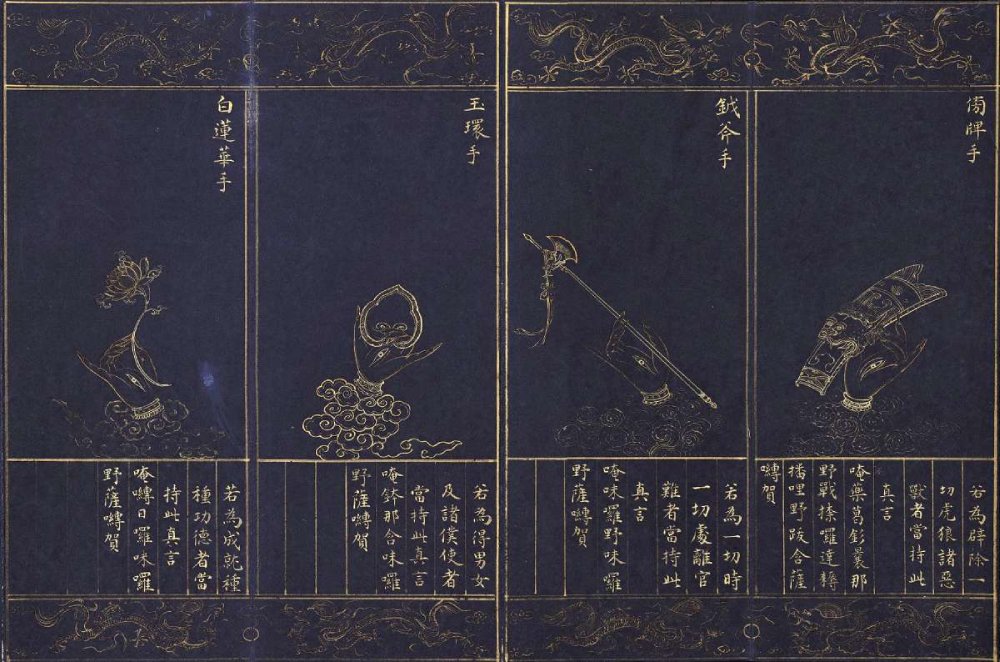 牌手
若為辟除一
切虎狼諸惡
獸者當持此
真言
唵藥葛釤曩那
野戰捺羅達耨
播哩野跋舍薩
囀賀
鉞斧手
若為一切時
一切處離官
難者當持此
真言
唵味羅野味羅
野薩囀賀
玉環手
若為得男女
及諸僕使者
當持此真言
唵鉢那含味羅
野薩囀賀
白蓮華手
若為成就種
種功德者當
持此真言
唵囀日羅味羅
野薩囀賀